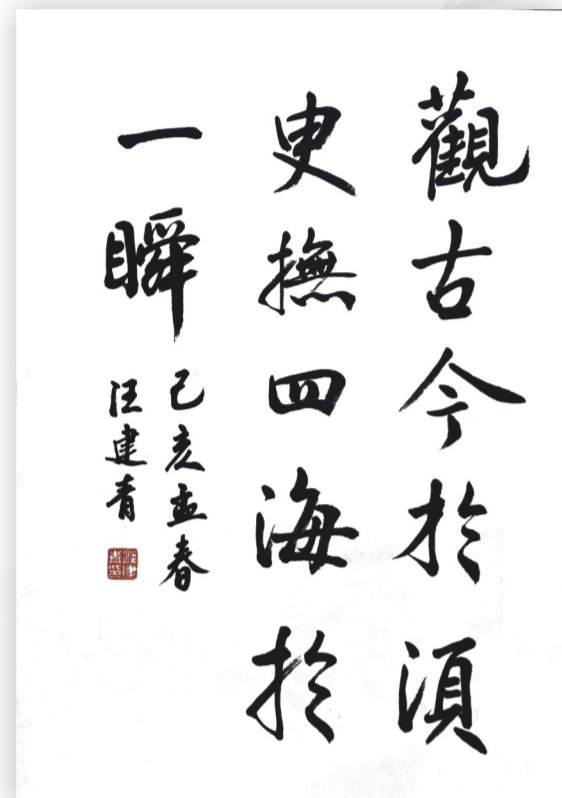 觀古今於須
臾撫四海於
一瞬
己亥孟春
汪建青
汪建青印